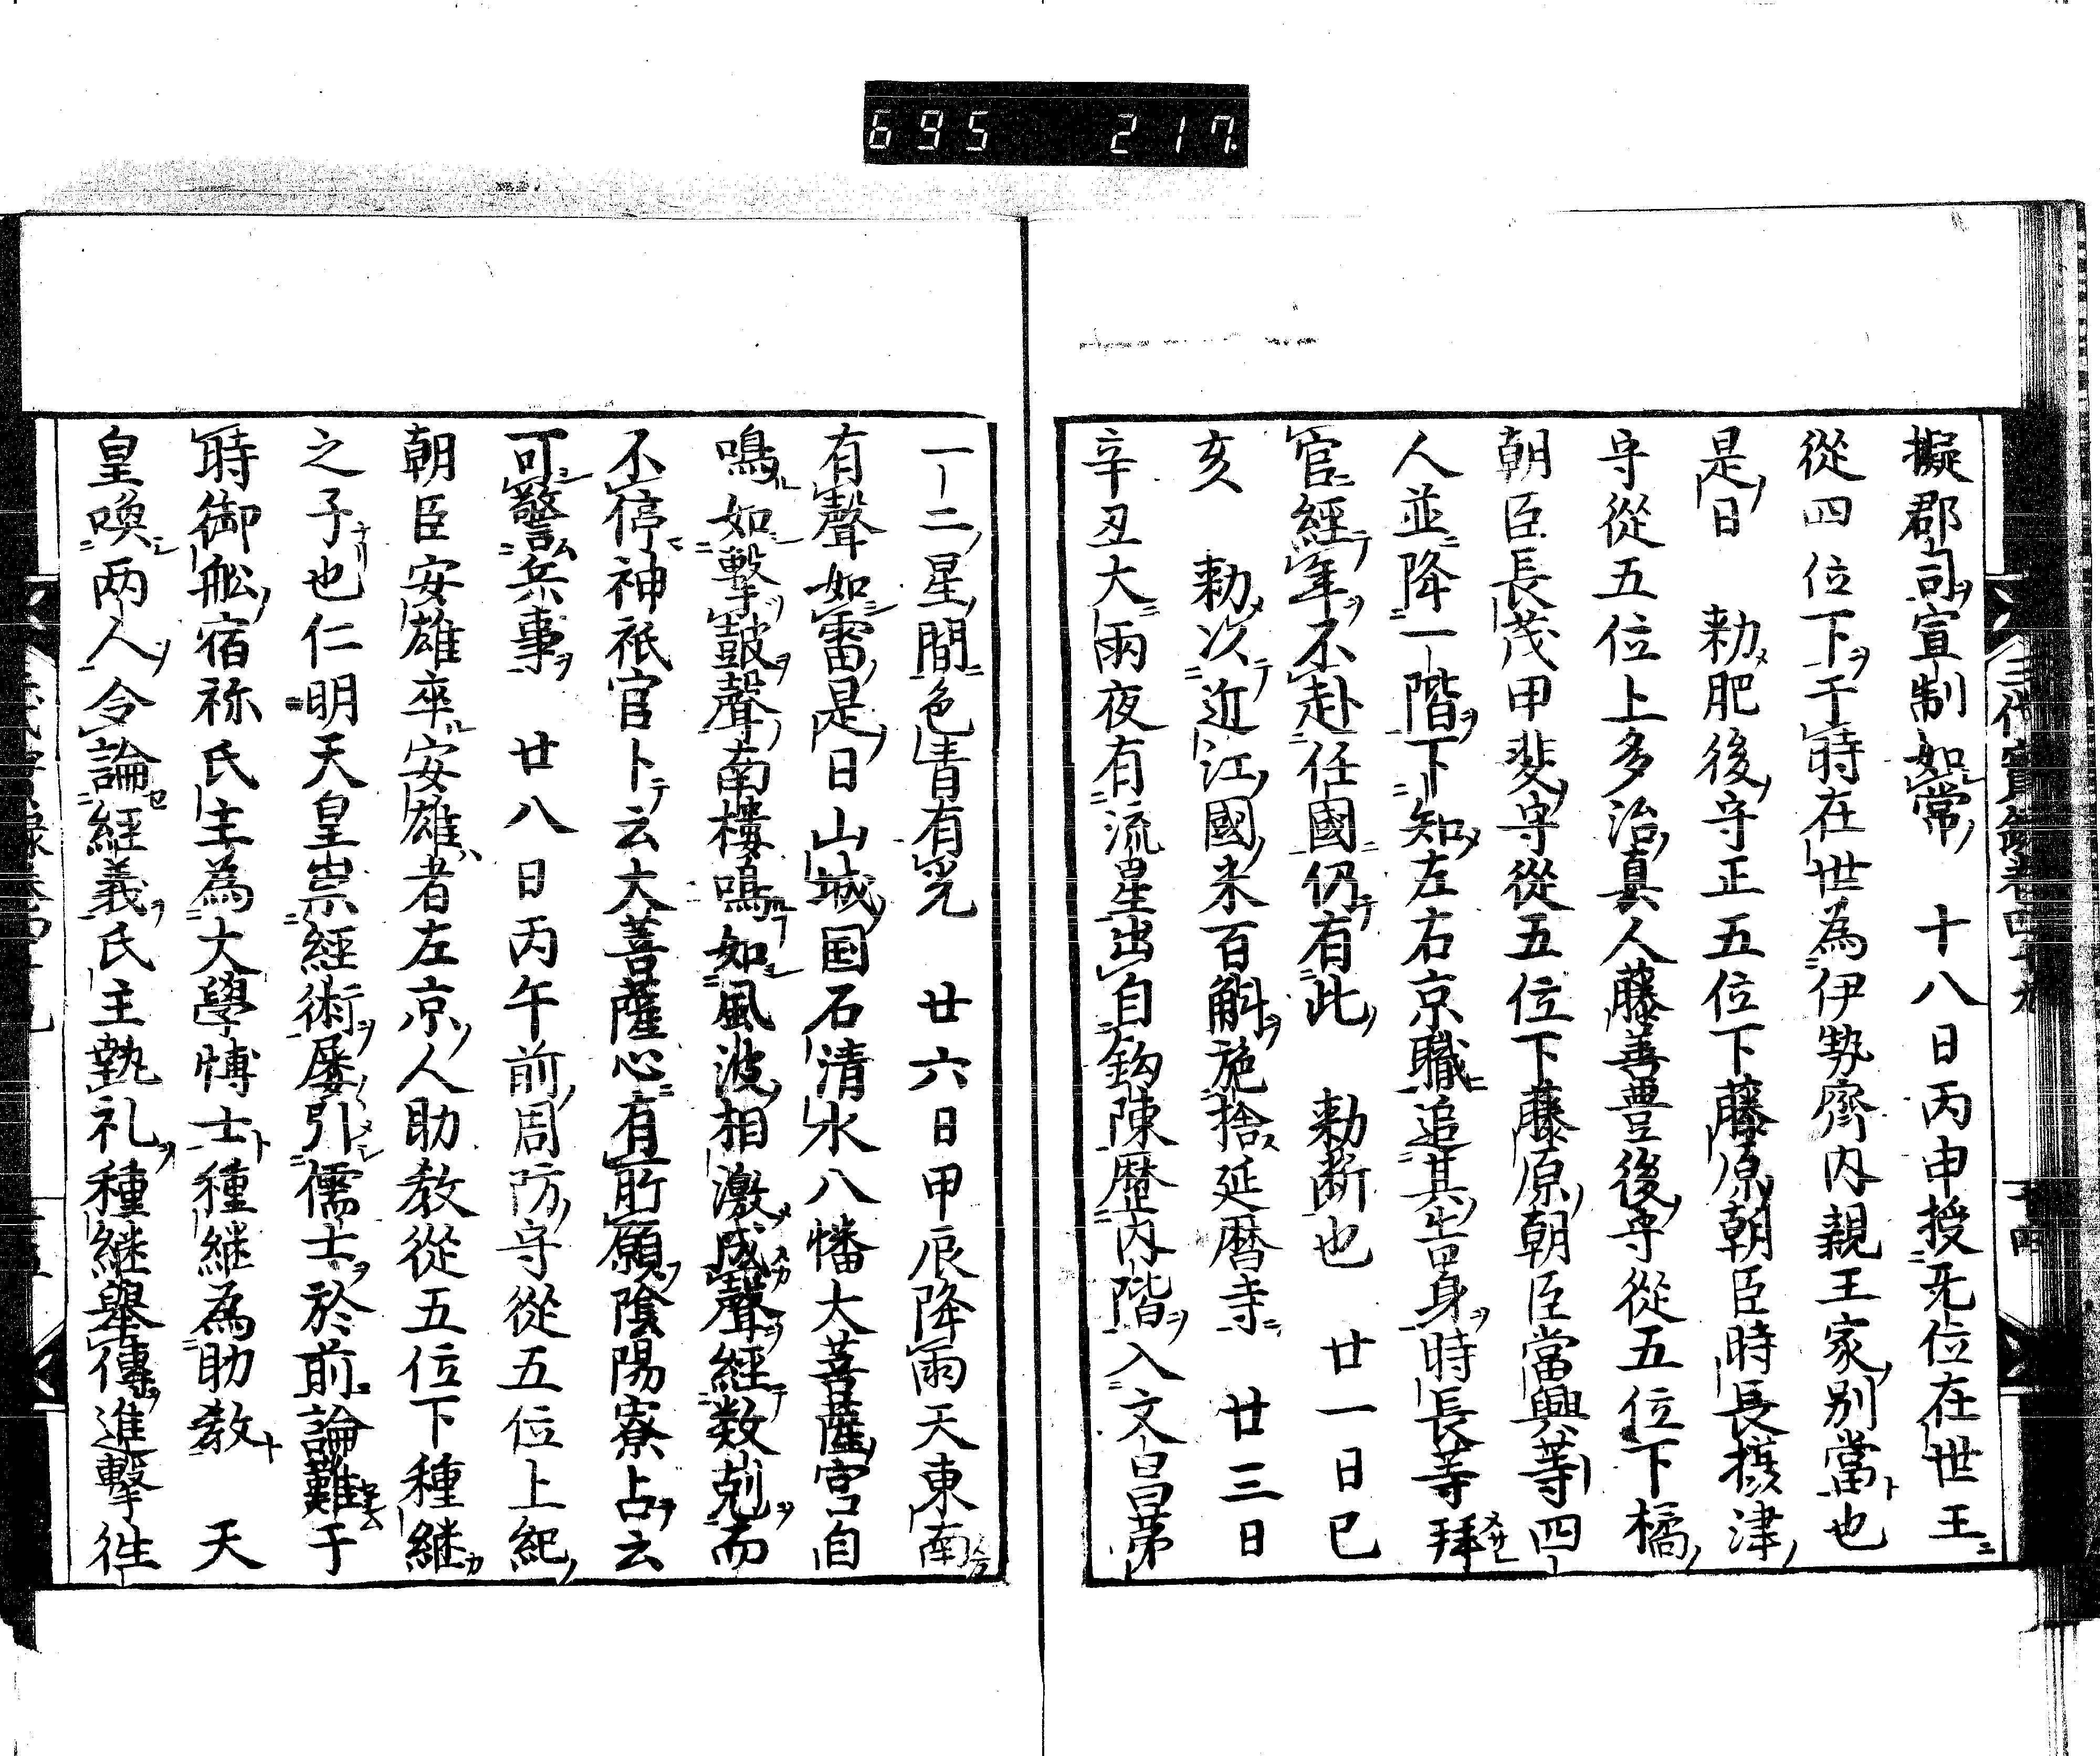 695 217
擬郡司宣制如常 十八日丙申授无位在世王
從四位下于時在世為伊勢齊内親王家別當也
是日 勅肥後守正五位下藤原朝臣時長攝津
守從五位上多治真人藤善豊後守從五位下橘
朝臣長茂甲斐守從五位下藤原朝臣當興等四
人並降一階下知左右京職追其告身時長等拜
官經年不赴任國仍有此 勅断也 廿一日己
亥 勅以近江國米百斛施捨延暦寺 廿三日
辛丑大雨夜有流星出自鈎陳歴内階入文昌第
一二星間色青有光 廿六日甲辰降雨天東南
有聲如雷是日山城国石清水八幡大菩薩宮自
鳴如擊鼓聲南樓鳴如風波相激成聲經数剋而
不停神祇官卜云大菩薩心有所願陰陽寮占云
可警兵事 廿八日丙午前周防守從五位上紀
朝臣安雄卒安雄者左京人助教從五位下種継
之子也仁明天皇崇經術屡引儒士於前論難于
時御舩宿祢氏主為大學博士種継為助教 天
皇喚兩人令論經義氏主執礼種継舉傳進擊徃